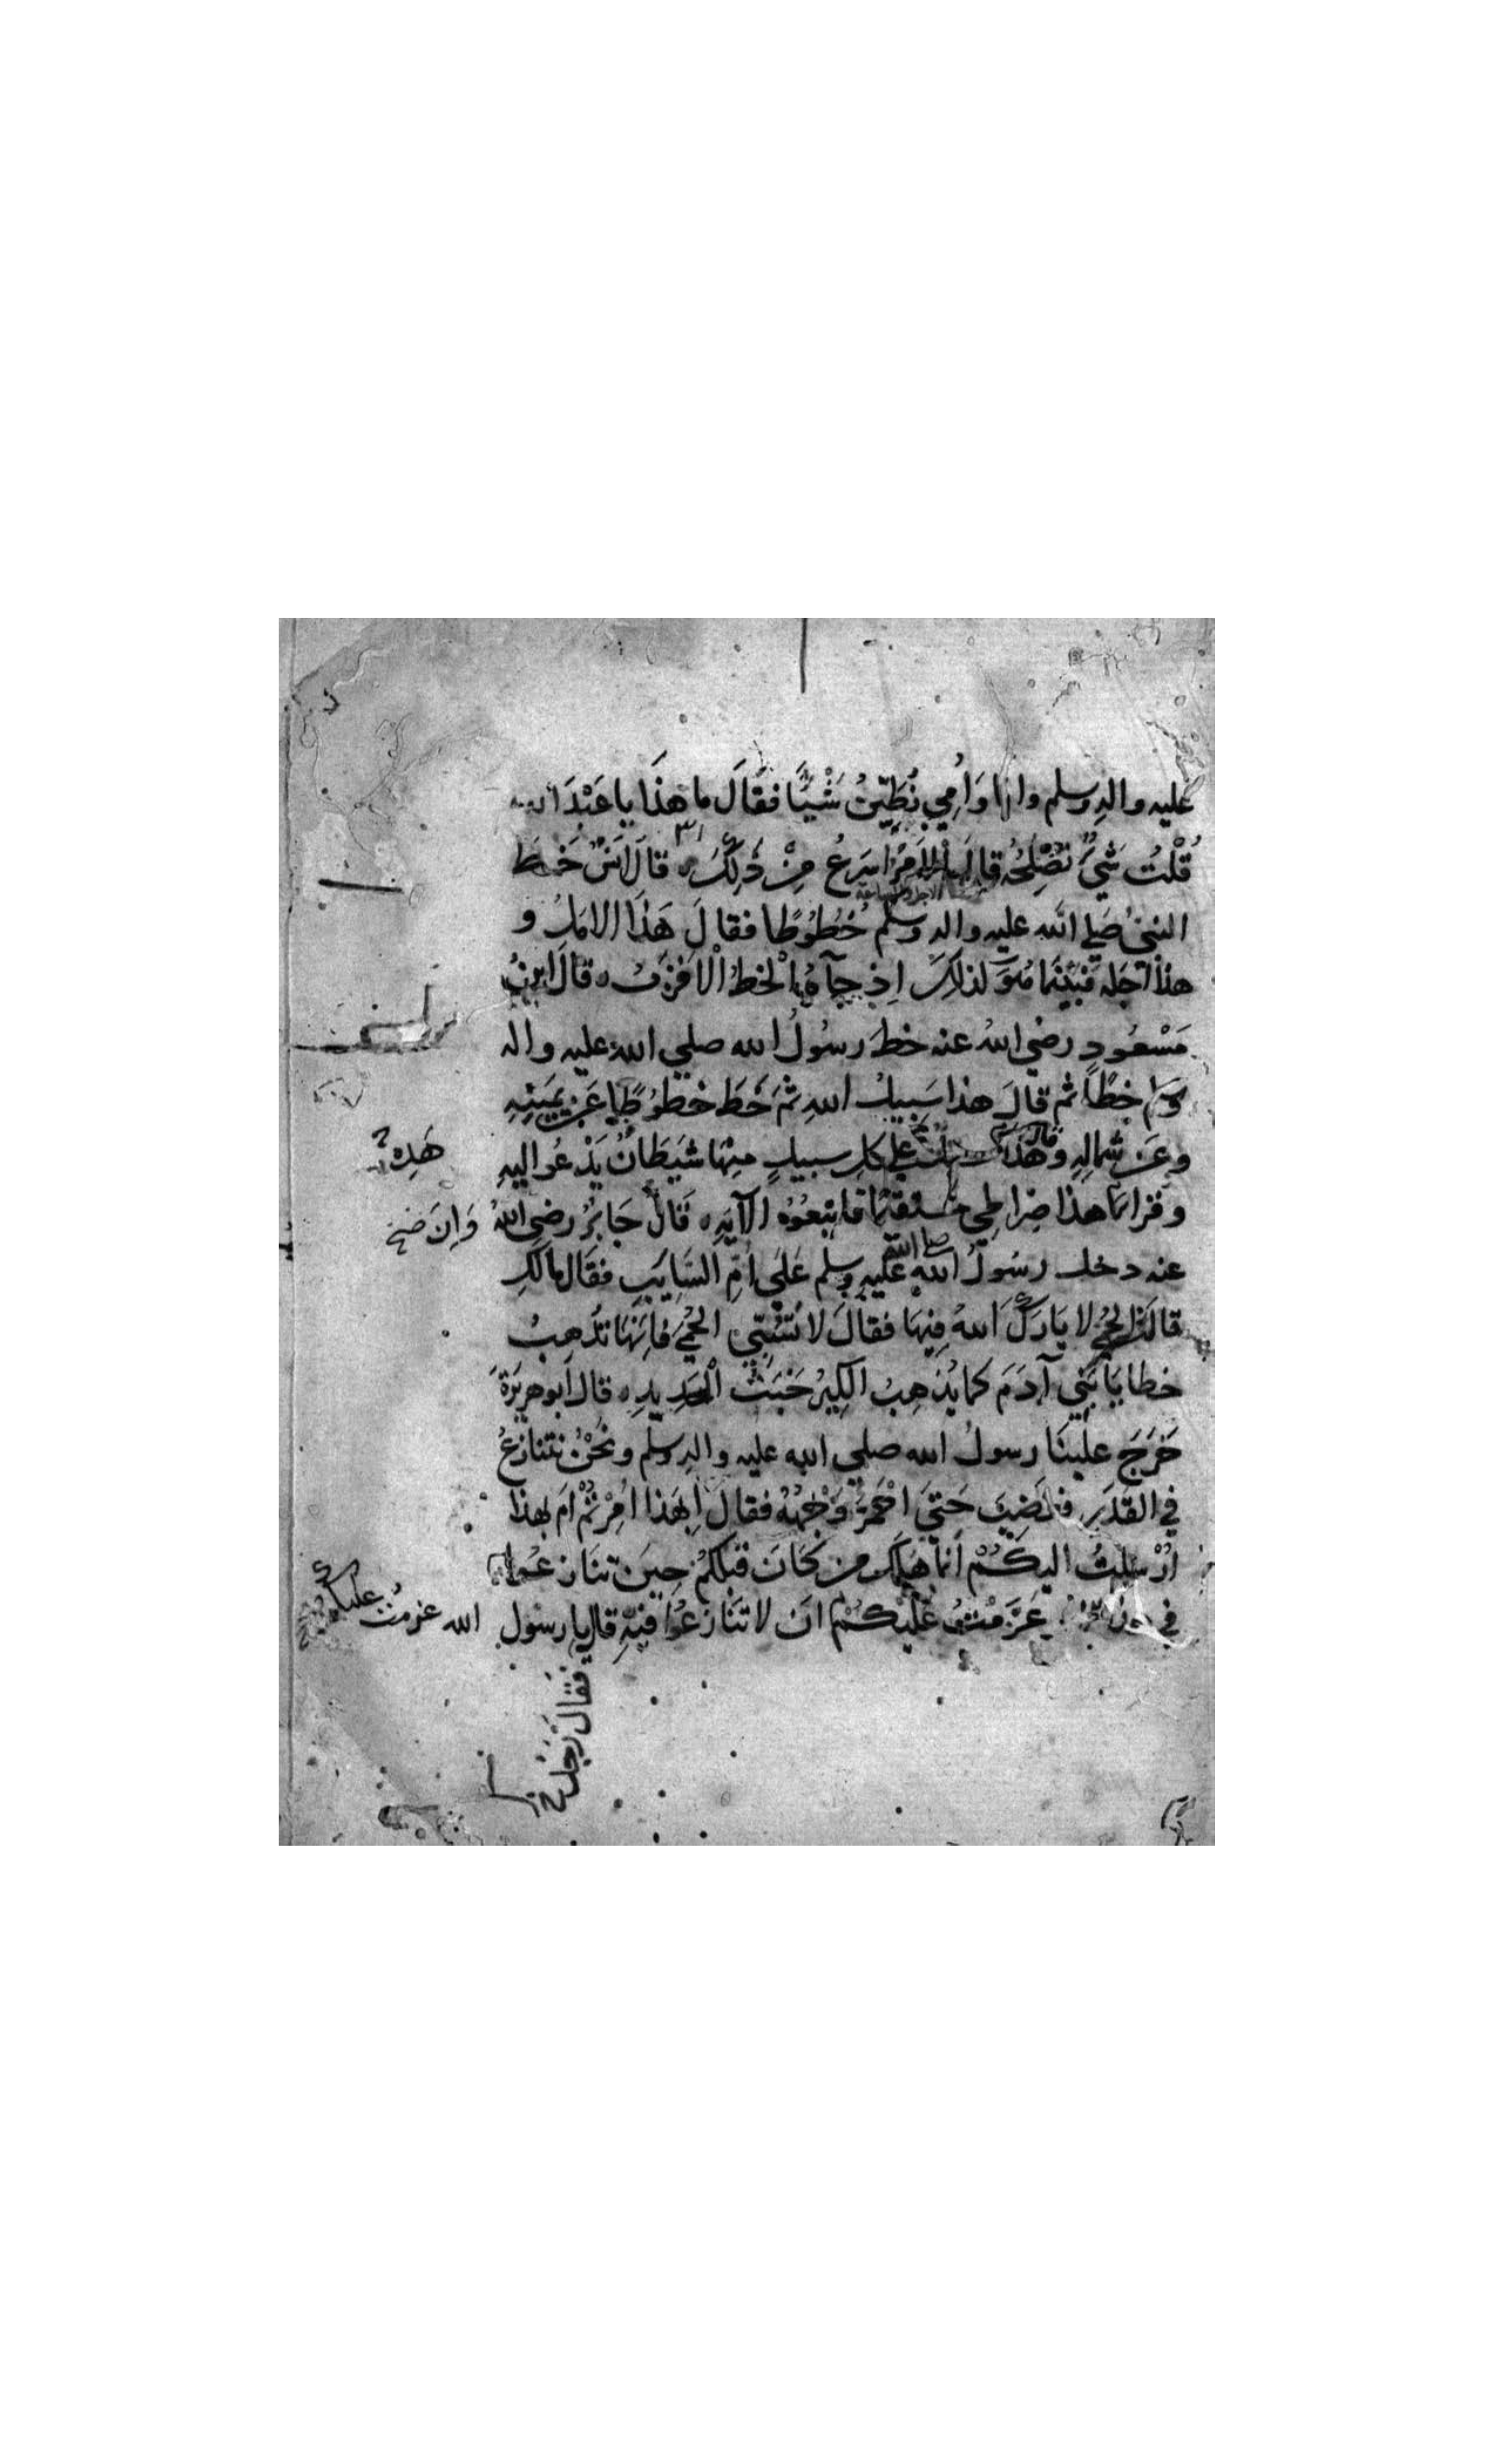 عليه واله وسلم وانا وَاُمِي نُطَيِّنُ شَيْئًا فقَالَ ما هذَا يا عَبْدَ الله
قُلْتُ شَيْءٌ نُصْلِحُهُ قالَ الاَمْرُ اسرَعُ مِنْ ذلِكَ ه قالَ انسٌ خَطَّ
النبيُ صَلي الله عليه واله وسلم خُطُوطًا فقالَ هَذا الامَلُ و
هذا اجَله فبَيْنَمَا هُوَ كذلك اِذ جآءَهُ الخطُ الاقرَبُ ه قالَ ابنُ
مَسْعُودٍ رضي اللهُ عنه خطَ رسُولُ الله صلي الله عليه واله
وسلم خطًا ثم قالَ هذا سَبيلُ اللهِ ثمَ خَطَ خطُوطًا عَن يمَينِهِ
وعَن شمالِهِ وقال هذه سبل علي كل سبيلٍ منهَا شيَطَانٌ يَدْعُو اليهِ
هَذِه
وقرا انّ هذا صِراطِي مستقيمًا فاتبعُوُه الآيَه ه قَالَ جَابِرُ رضي اللهُ
وَاِنَ صح
عنه دخل رسُولُ الله صلي الله عليه وسلم عَلَي اُمِّ السَّايبِ فقَال مالكِ
قالت الحُمي لا بَارَكَ اللهُ فيهَا فقالَ لا تَسُبّي الحُمّيَ فاِنّهَا تُذهِبُ
خطايَا بَنِي آدَمَ كما يُذهِبُ الكِيرُ خَبَثَ الحَدِيدِ ه قال ابو هريرَةَ
خَرَجَ علَينَا رسولُ الله صلي الله عليه واله وسلم ونحْنُ نتنازعُ
في القَدَرِ فغَضِبَ حَتيَ احْمَرَّ وَجْهُهُ فقالَ اَبِهَذا اُمِرْتُمْ اَم بهذَا
اُرْسِلتُ اليكُمْ اَنمَا هَلَكَ من كَانَ قبَلكُمْ حِينَ تنَازعُوا
في هذا عَزَمْتُ عَلَيْكُمْ اَن لا تَنَازعُوا فيهِ قال يا رسُول
الله عزمتُ عليكم
فقَالَ رَجُلٌ